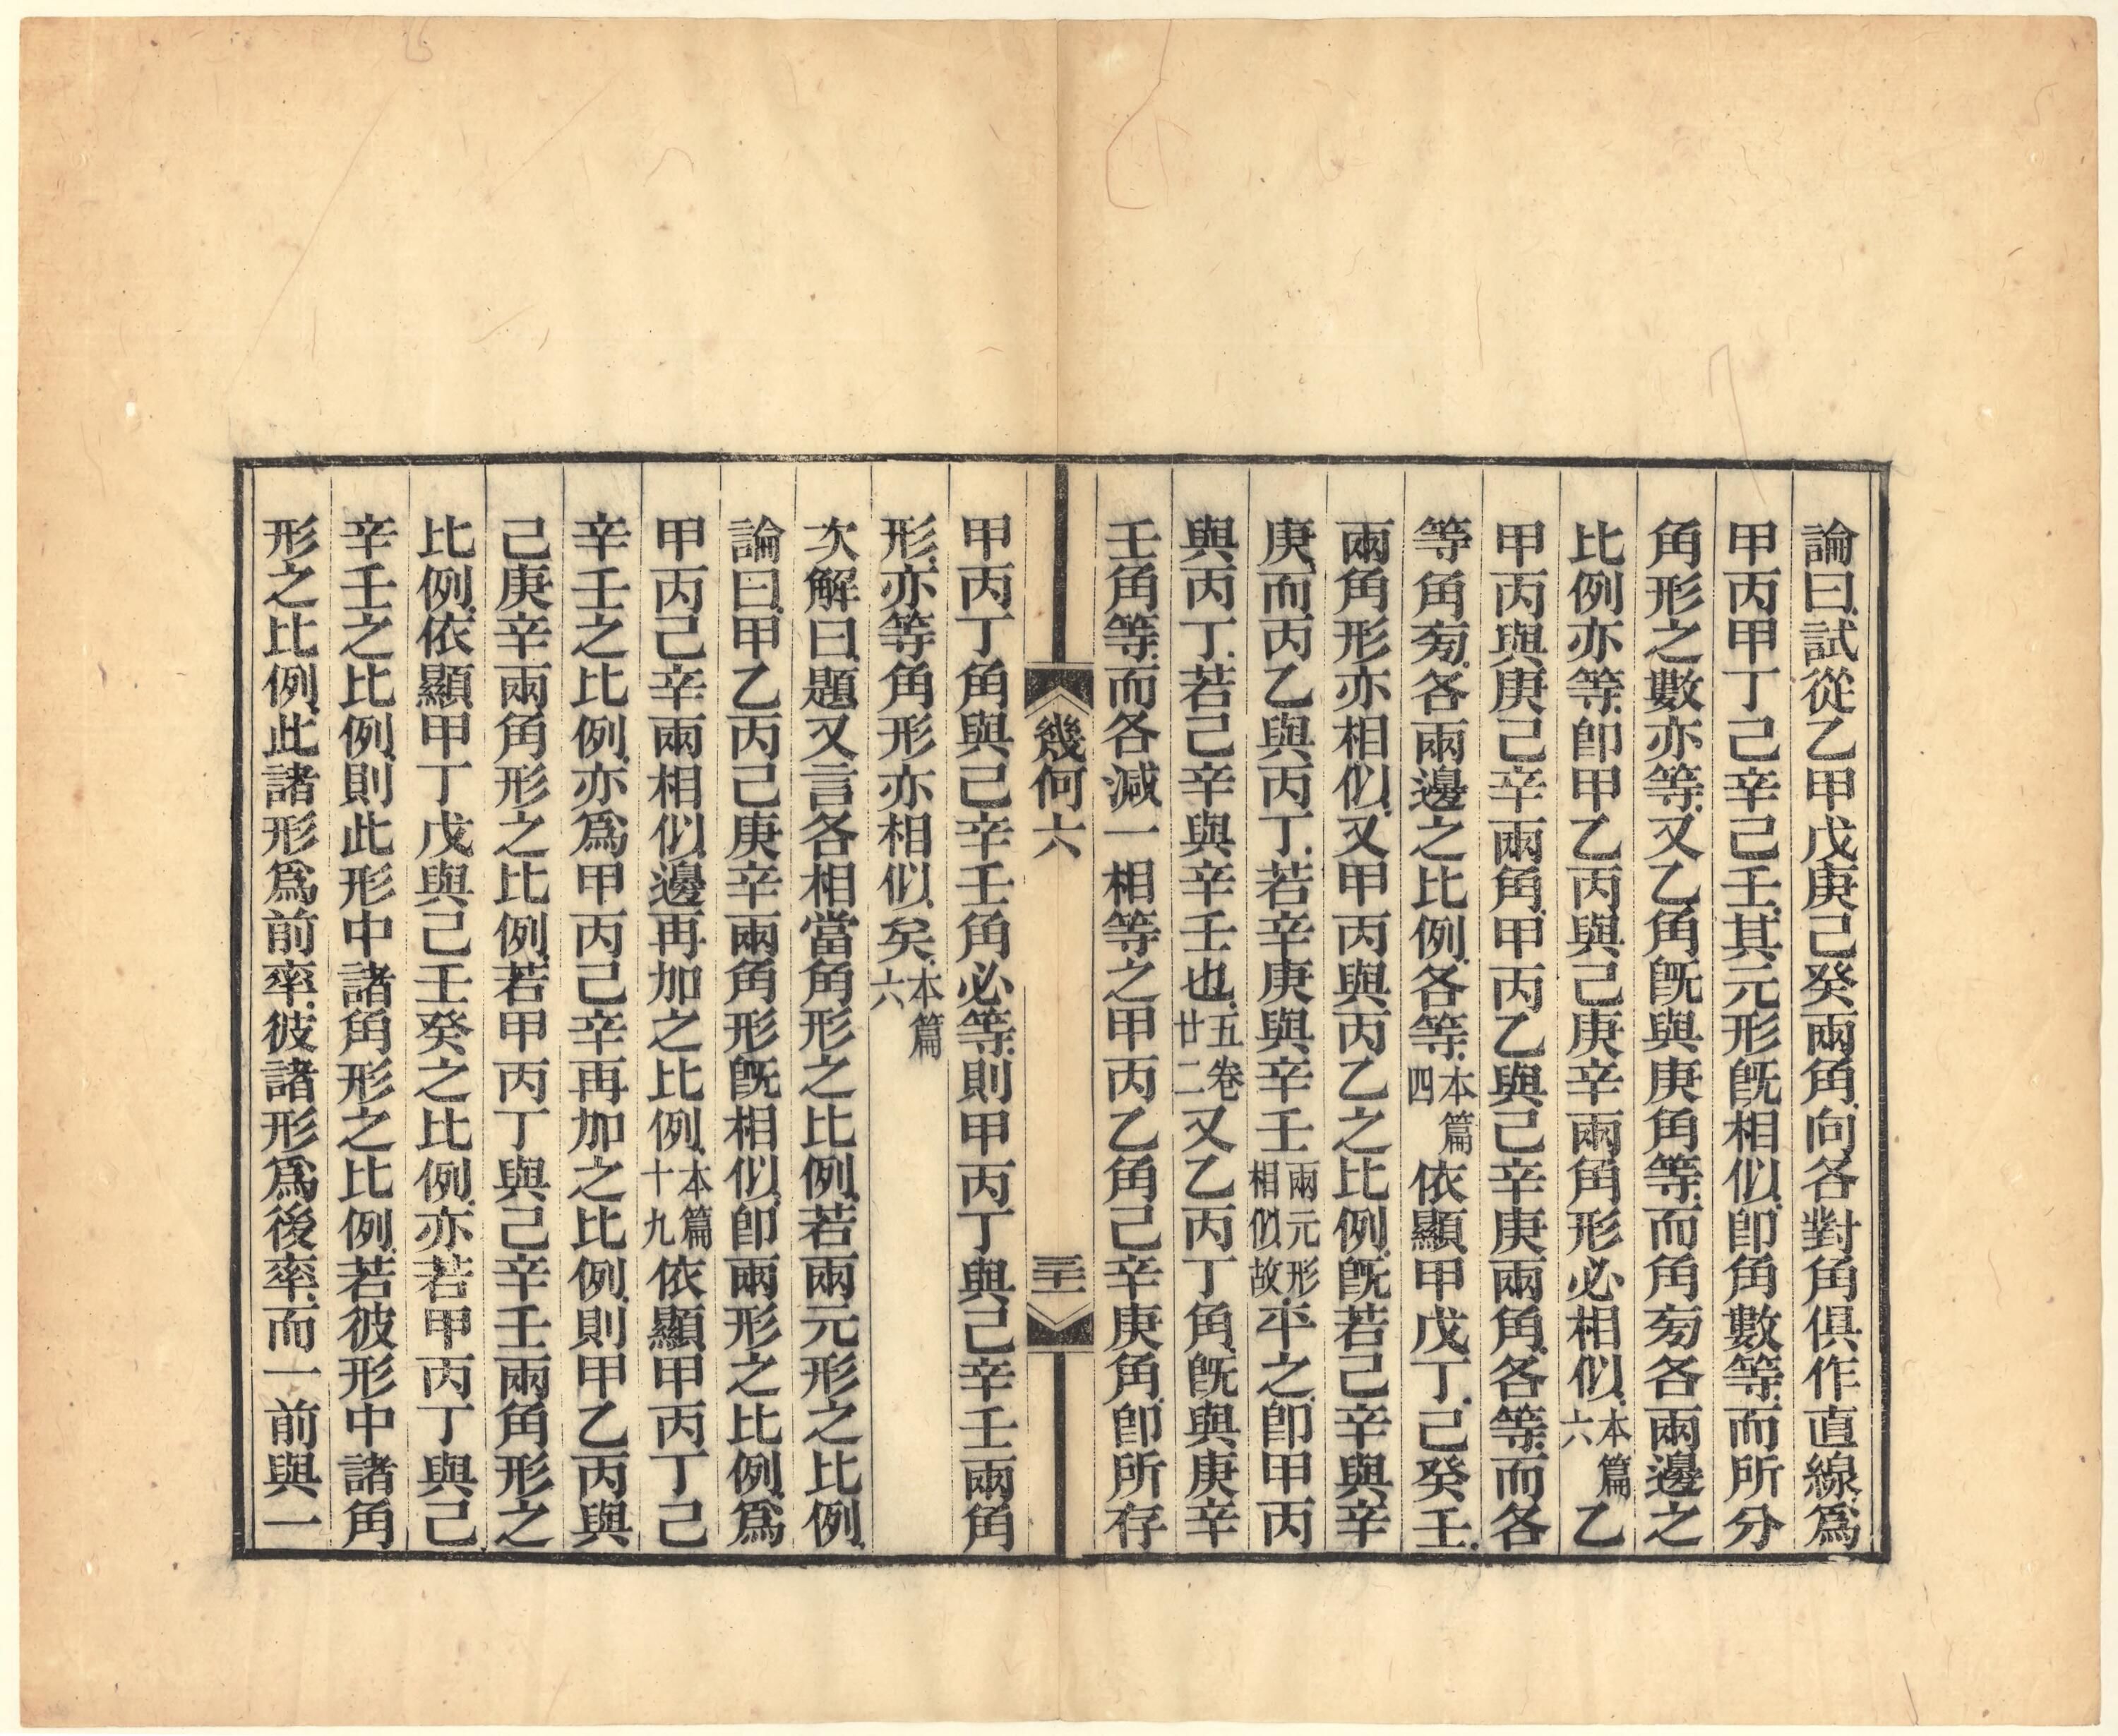 論曰試從乙甲戊庚己癸兩角向各對角俱作直線爲
甲丙甲丁己辛己壬其元形旣相似卽角數等而所分
角形之數亦等又乙角旣與庚角等而角旁各兩邊之
比例亦等卽甲乙丙與己庚辛兩角形必相似本篇六乙
甲丙與庚己辛兩角甲丙乙與己辛庚兩角各等而各
等角旁各兩邊之比例各等本篇四依顯甲戊丁己癸壬
兩角形亦相似又甲丙與丙乙之比例旣若己辛與辛
庚而丙乙與丙丁若辛庚與辛壬兩元形相似故平之卽甲丙
與丙丁若己辛與辛壬也五卷廿二又乙丙丁角旣與庚辛
壬角等而各減一相等之甲丙乙角己辛庚角卽所存
幾何六
三十一
甲丙丁角與己辛壬角必等則甲丙丁與己辛壬兩角
形亦等角形亦相似矣本篇六
次解曰題又言各相當角形之比例若兩元形之比例
論曰甲乙丙己庚辛兩角形旣相似卽兩形之比例爲
甲丙己辛兩相似邊再加之比例本篇十九依顯甲丙丁己
辛壬之比例亦爲甲丙己辛再加之比例則甲乙丙與
己庚辛兩角形之比例若甲丙丁與己辛壬兩角形之
比例依顯甲丁戊與己壬癸之比例亦若甲丙丁與己
辛壬之比例則此形中諸角形之比例若彼形中諸角
形之比例此諸形爲前率彼諸形爲後率而一前與一